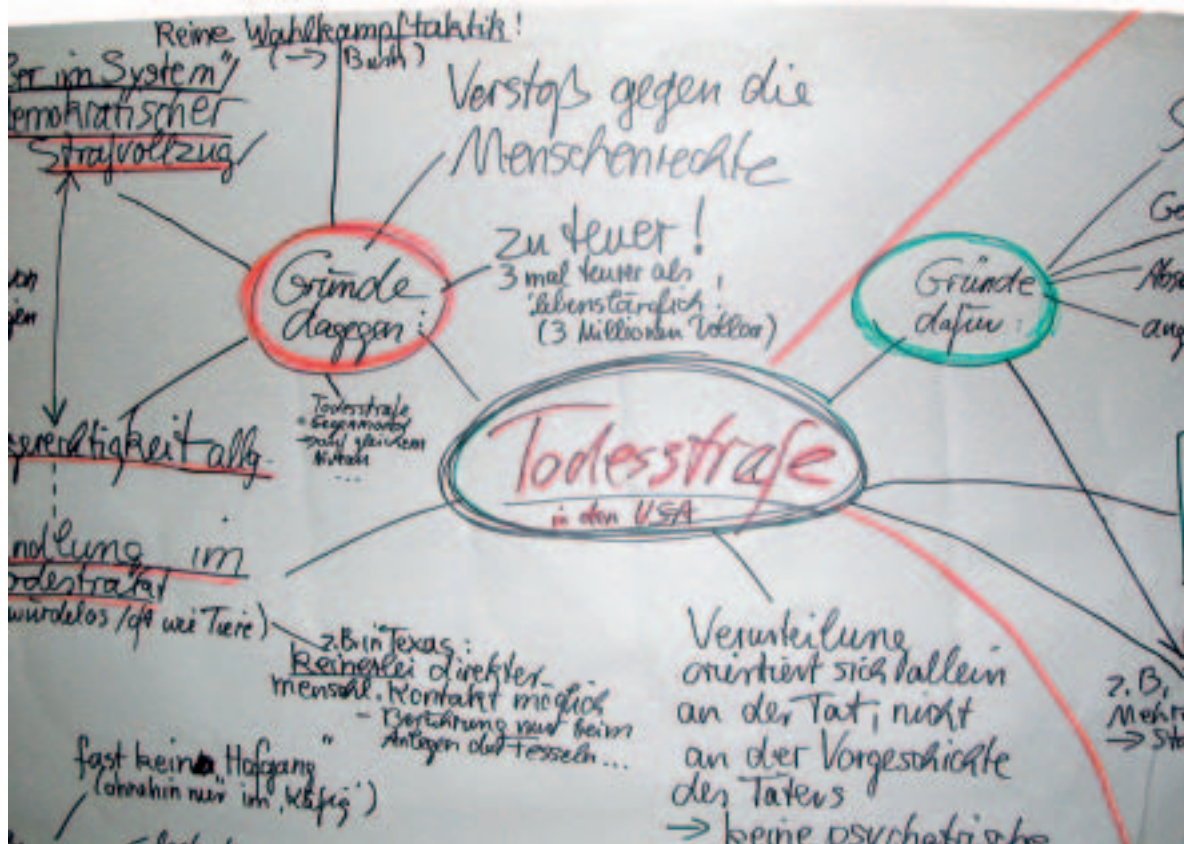 Reine Wahlkampftaktik!
(→ Bush)
im System"
demokratischer
Strafvollzug
Verstoß gegen die
Menschenrechte
zu teuer!
3 mal teurer als
lebenslänglich!
(3 Millionen Dollar)
Gründe
dagegen:
Gründe
dafür:
Todesstrafe
= Gegenmord
→ auf gleichem
Niveau
...
Todesstrafe
in den USA
gerechtigkeit allg.
ndlung im
würdelos / oft wie Tiere)
z.B. in Texas:
Keinerlei direkter
menschl. Kontakt möglich
- Berührung nur beim
Anlegen der Fesseln...
fast kein Hofgang
(ohnehin nur im "Käfig")
Verurteilung
orientiert sich allein
an der Tat, nicht
an der Vorgeschichte
des Täters
→ keine psychatrische
z.B.
Mehr
→ Sta